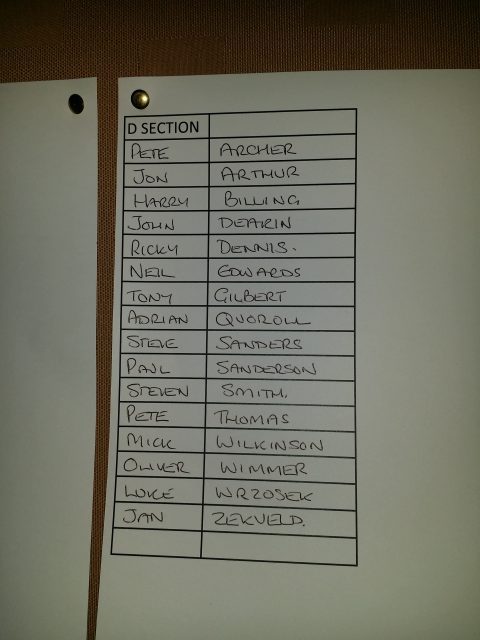 D SECTION
PETE ARCHER
JON ARTHUR
HARRY BILLING
JOHN DEAKIN
RICKY DENNIS.
NEIL EDWARDS
TONY GILBERT
ADRIAN QUOROLL
STEVE SANDERS
PAUL SANDERSON
STEVEN SMITH.
PETE THOMAS
MICK WILKINSON
OLIVER WIMMER
LUKE WRZOSEK
JAN ZEKVELD.